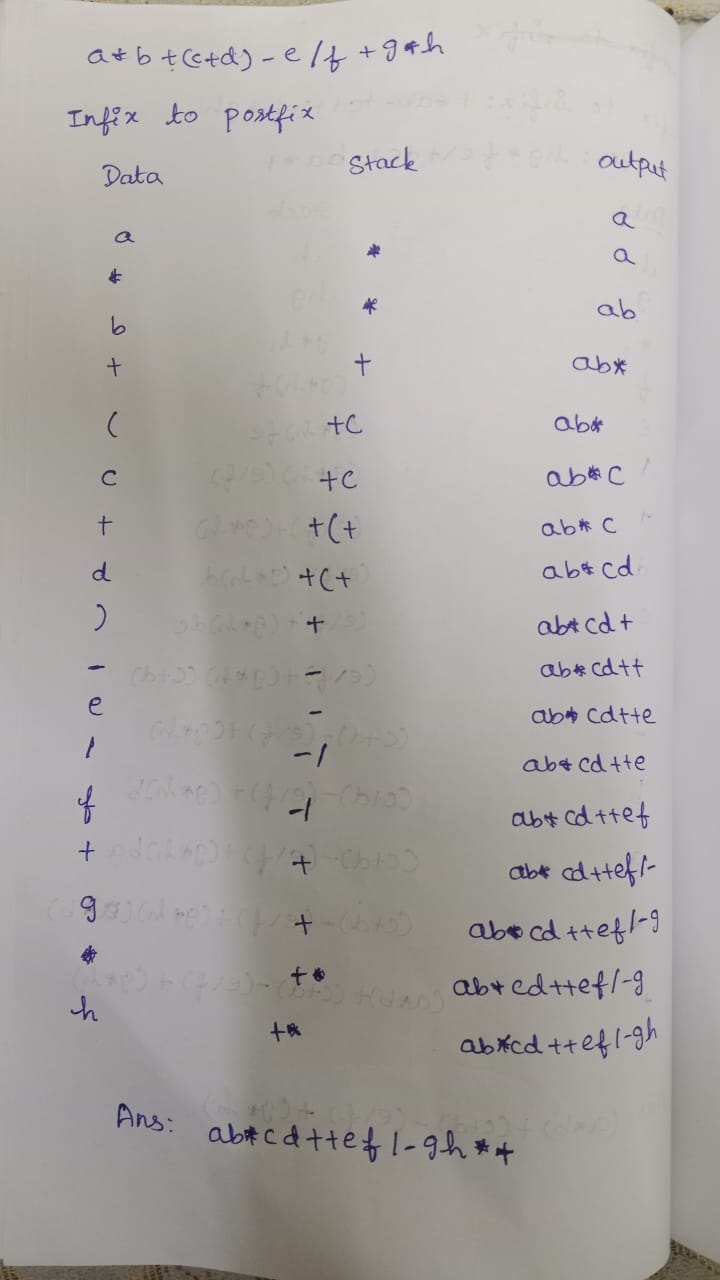 a*b+(c+d)-e/f+g*h
Infix to postfix
Data Stack output
a a
* * a
b * ab
+ + ab*
( +( ab*
c +( ab*c
+ +(+ ab*c
d +(+ ab*cd
) + ab*cd+
- - ab*cd++
e - ab*cd++e
/ -/ ab*cd++e
f -/ ab*cd++ef
+ + ab*cd++ef/-
g + ab*cd++ef/-g
* +* ab*cd++ef/-g
h +* ab*cd++ef/-gh
Ans: ab*cd++ef/-gh*+